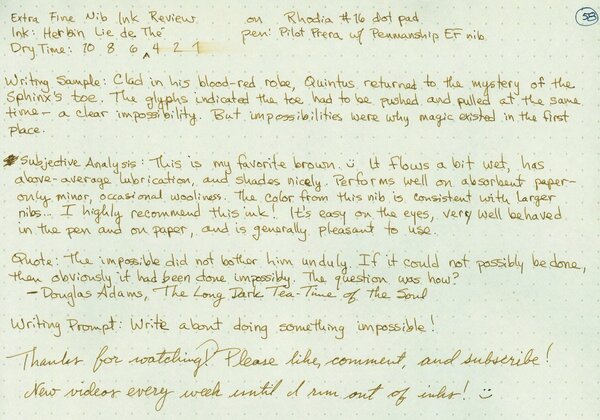 Extra Fine Nib Ink Review on Rhodia #16 dot pad 58
Ink: Herbin Lie de Thé pen: Pilot Prera w/ Penmanship EF nib
Dry Time: 10 8 6 ^ 4 2 1
Writing Sample: Clad in his blood-red robe, Quintus returned to the mystery of the
Sphinx's toe. The glyphs indicated the toe had to be pushed and pulled at the same
time – a clear impossibility. But impossibilities were why magic existed in the first
place.
Subjective Analysis: This is my favorite brown. :) It flows a bit wet, has
above-average lubrication, and shades nicely. Performs well on absorbent paper–
only minor, occasional wooliness. The color from this nib is consistent with larger
nibs... I highly recommend this ink! It's easy on the eyes, very well behaved
in the pen and on paper, and is generally pleasant to use.
Quote: The impossible did not bother him unduly. If it could not possibly be done,
then obviously it had been done impossibly. The question was how?
– Douglas Adams, The Long Dark Tea-Time of the Soul
Writing Prompt: Write about doing something impossible!
Thanks for watching! Please like, comment, and subscribe!
New videos every week until I run out of inks! :)